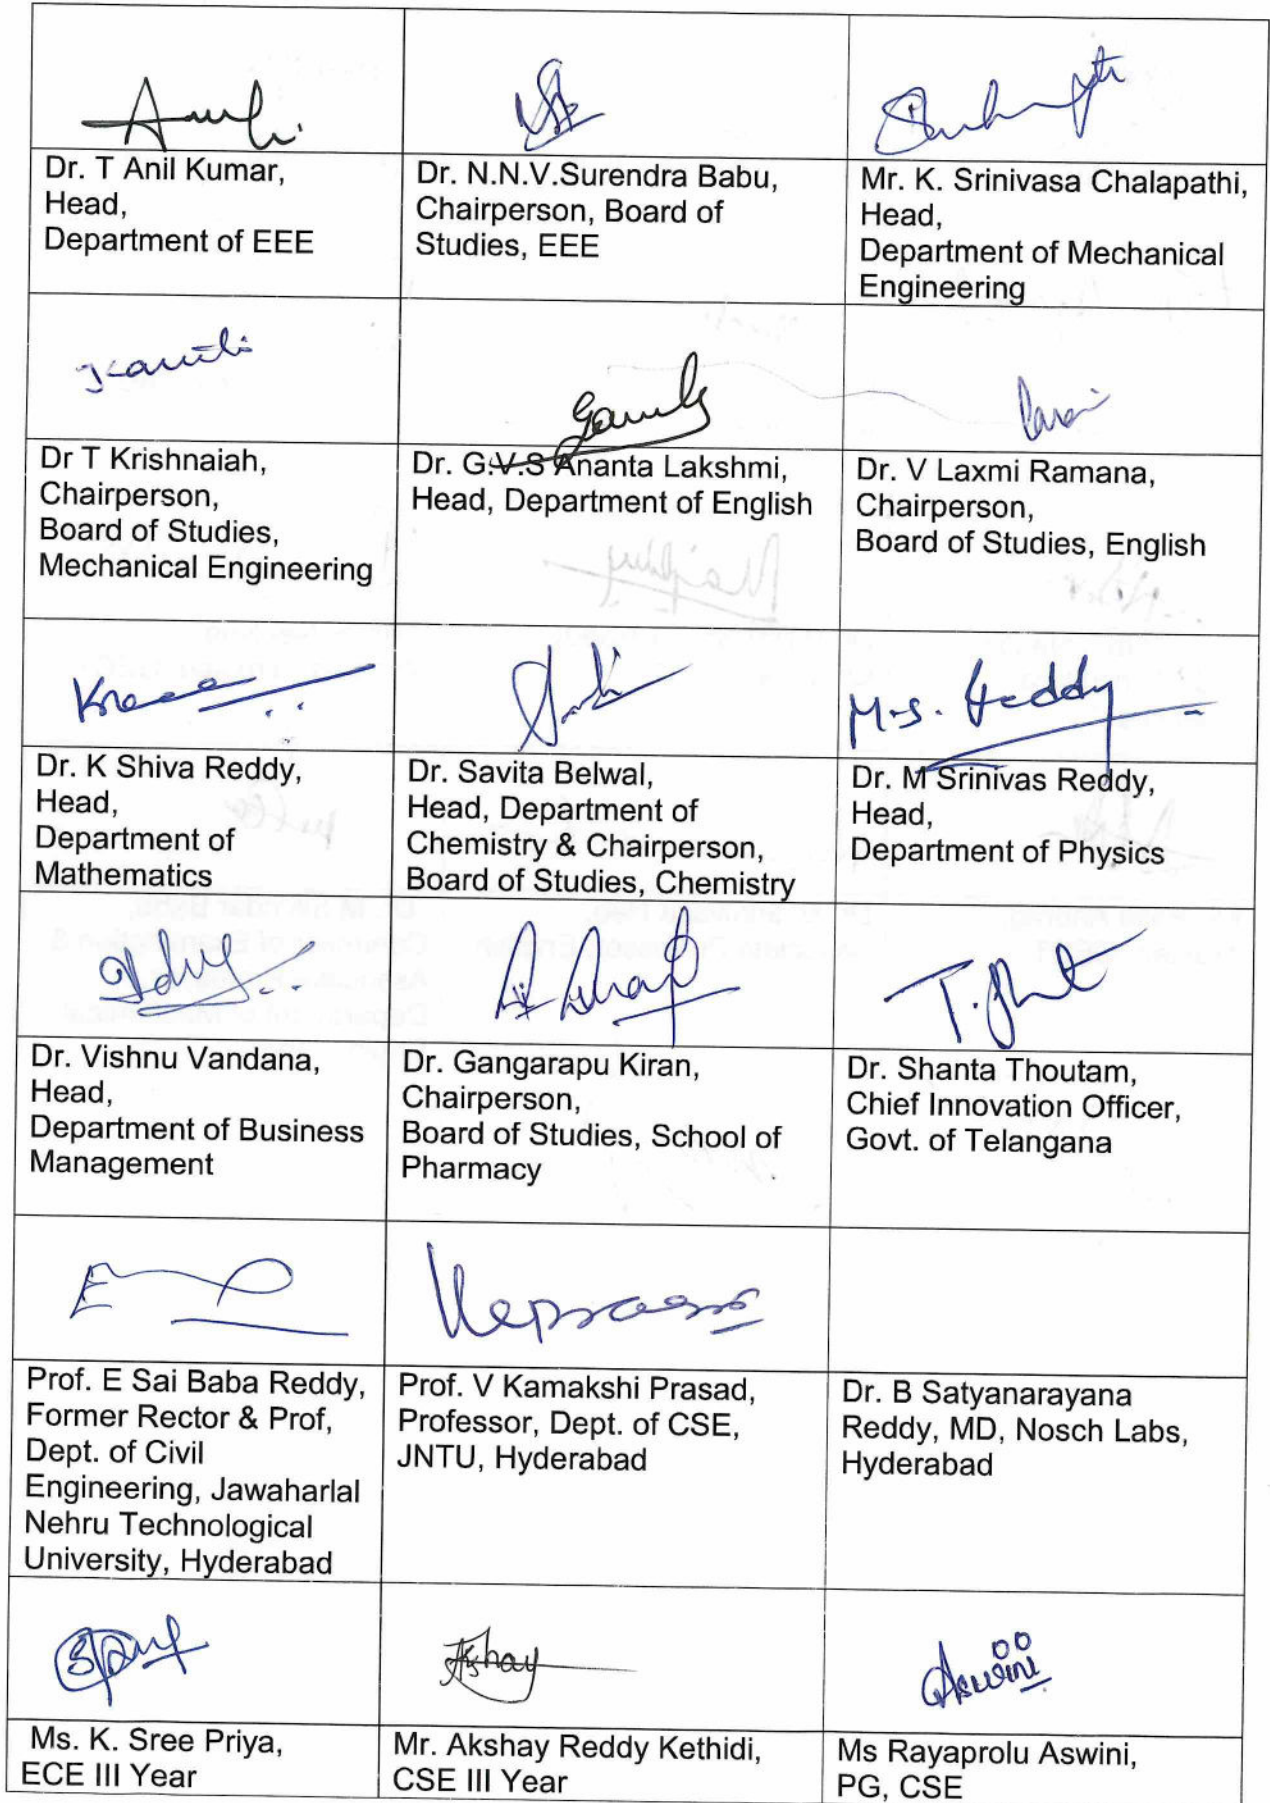 Dr. T Anil Kumar,
Head,
Department of EEE
Dr. N.N.V.Surendra Babu,
Chairperson, Board of
Studies, EEE
Mr. K. Srinivasa Chalapathi,
Head,
Department of Mechanical
Engineering
Dr T Krishnaiah,
Chairperson,
Board of Studies,
Mechanical Engineering
Dr. G.V.S Ananta Lakshmi,
Head, Department of English
Dr. V Laxmi Ramana,
Chairperson,
Board of Studies, English
M.S. Reddy
Dr. K Shiva Reddy,
Head,
Department of
Mathematics
Dr. Savita Belwal,
Head, Department of
Chemistry & Chairperson,
Board of Studies, Chemistry
Dr. M Srinivas Reddy,
Head,
Department of Physics
Dr. Vishnu Vandana,
Head,
Department of Business
Management
Dr. Gangarapu Kiran,
Chairperson,
Board of Studies, School of
Pharmacy
Dr. Shanta Thoutam,
Chief Innovation Officer,
Govt. of Telangana
Prof. E Sai Baba Reddy,
Former Rector & Prof,
Dept. of Civil
Engineering, Jawaharlal
Nehru Technological
University, Hyderabad
Prof. V Kamakshi Prasad,
Professor, Dept. of CSE,
JNTU, Hyderabad
Dr. B Satyanarayana
Reddy, MD, Nosch Labs,
Hyderabad
Akshay
Aswini
Ms. K. Sree Priya,
ECE III Year
Mr. Akshay Reddy Kethidi,
CSE III Year
Ms Rayaprolu Aswini,
PG, CSE